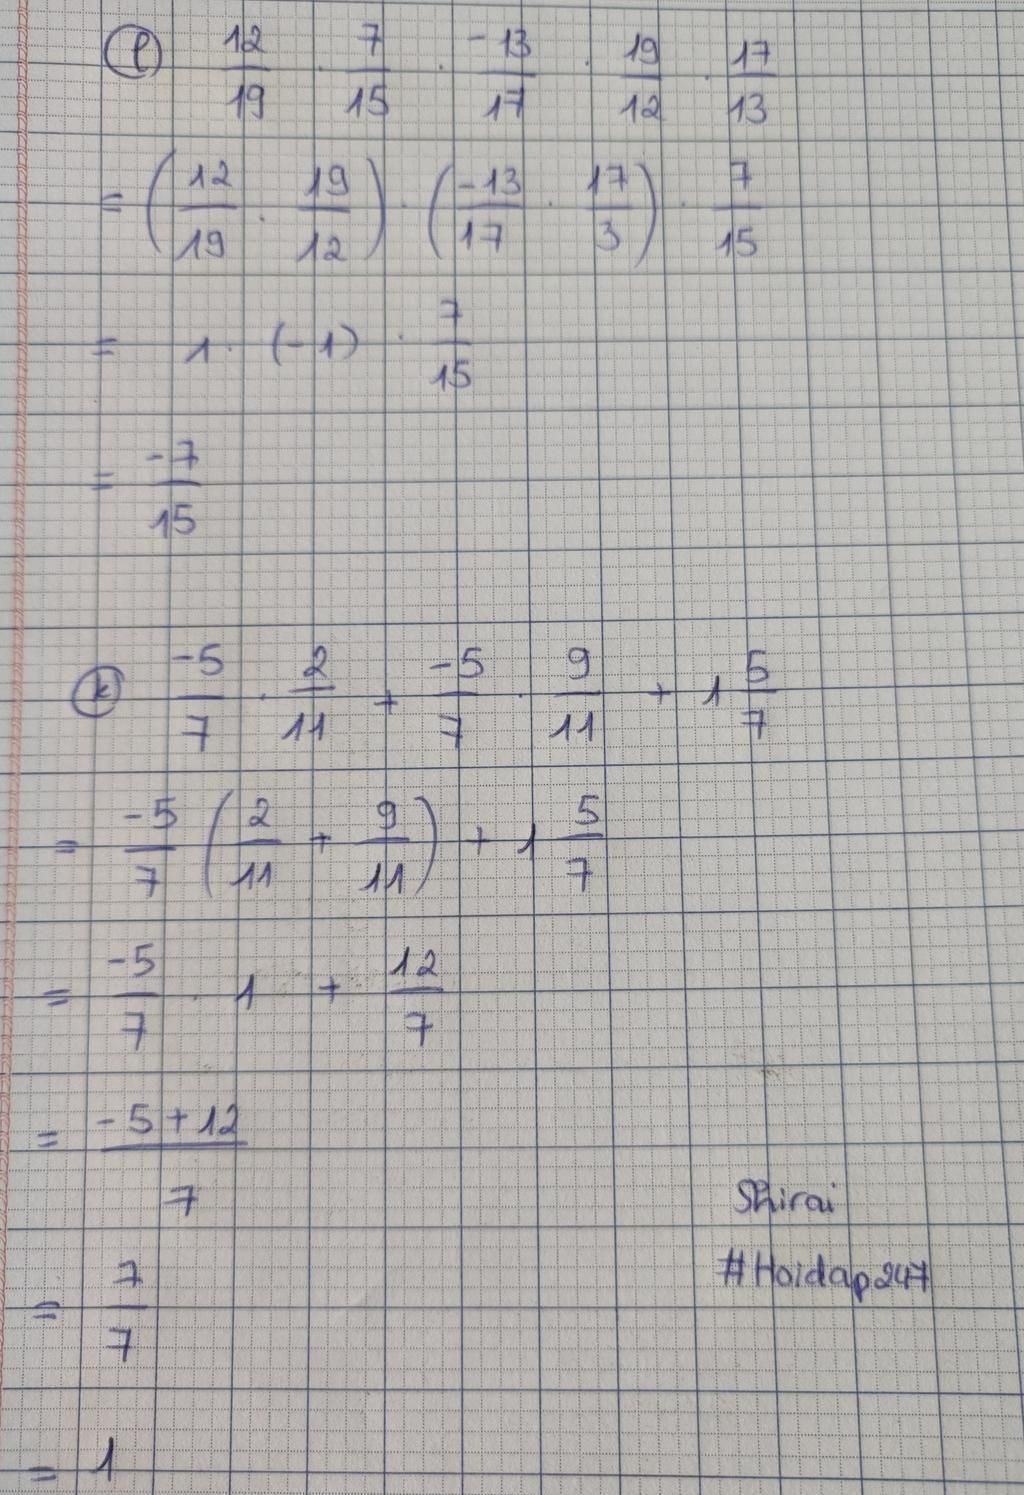 ⓛ 12/19 . 7/15 . -13/17 . 19/12 . 17/13
= (12/19 . 19/12) . (-13/17 . 17/3) . 7/15
= 1 . (-1) . 7/15
= -7/15
ⓚ -5/7 . 2/11 + -5/7 . 9/11 + 1 5/7
= -5/7 (2/11 + 9/11) + 1 5/7
= -5/7 . 1 + 12/7
= -5+12/7
Shirai
#Hoidap247
= 7/7
= 1